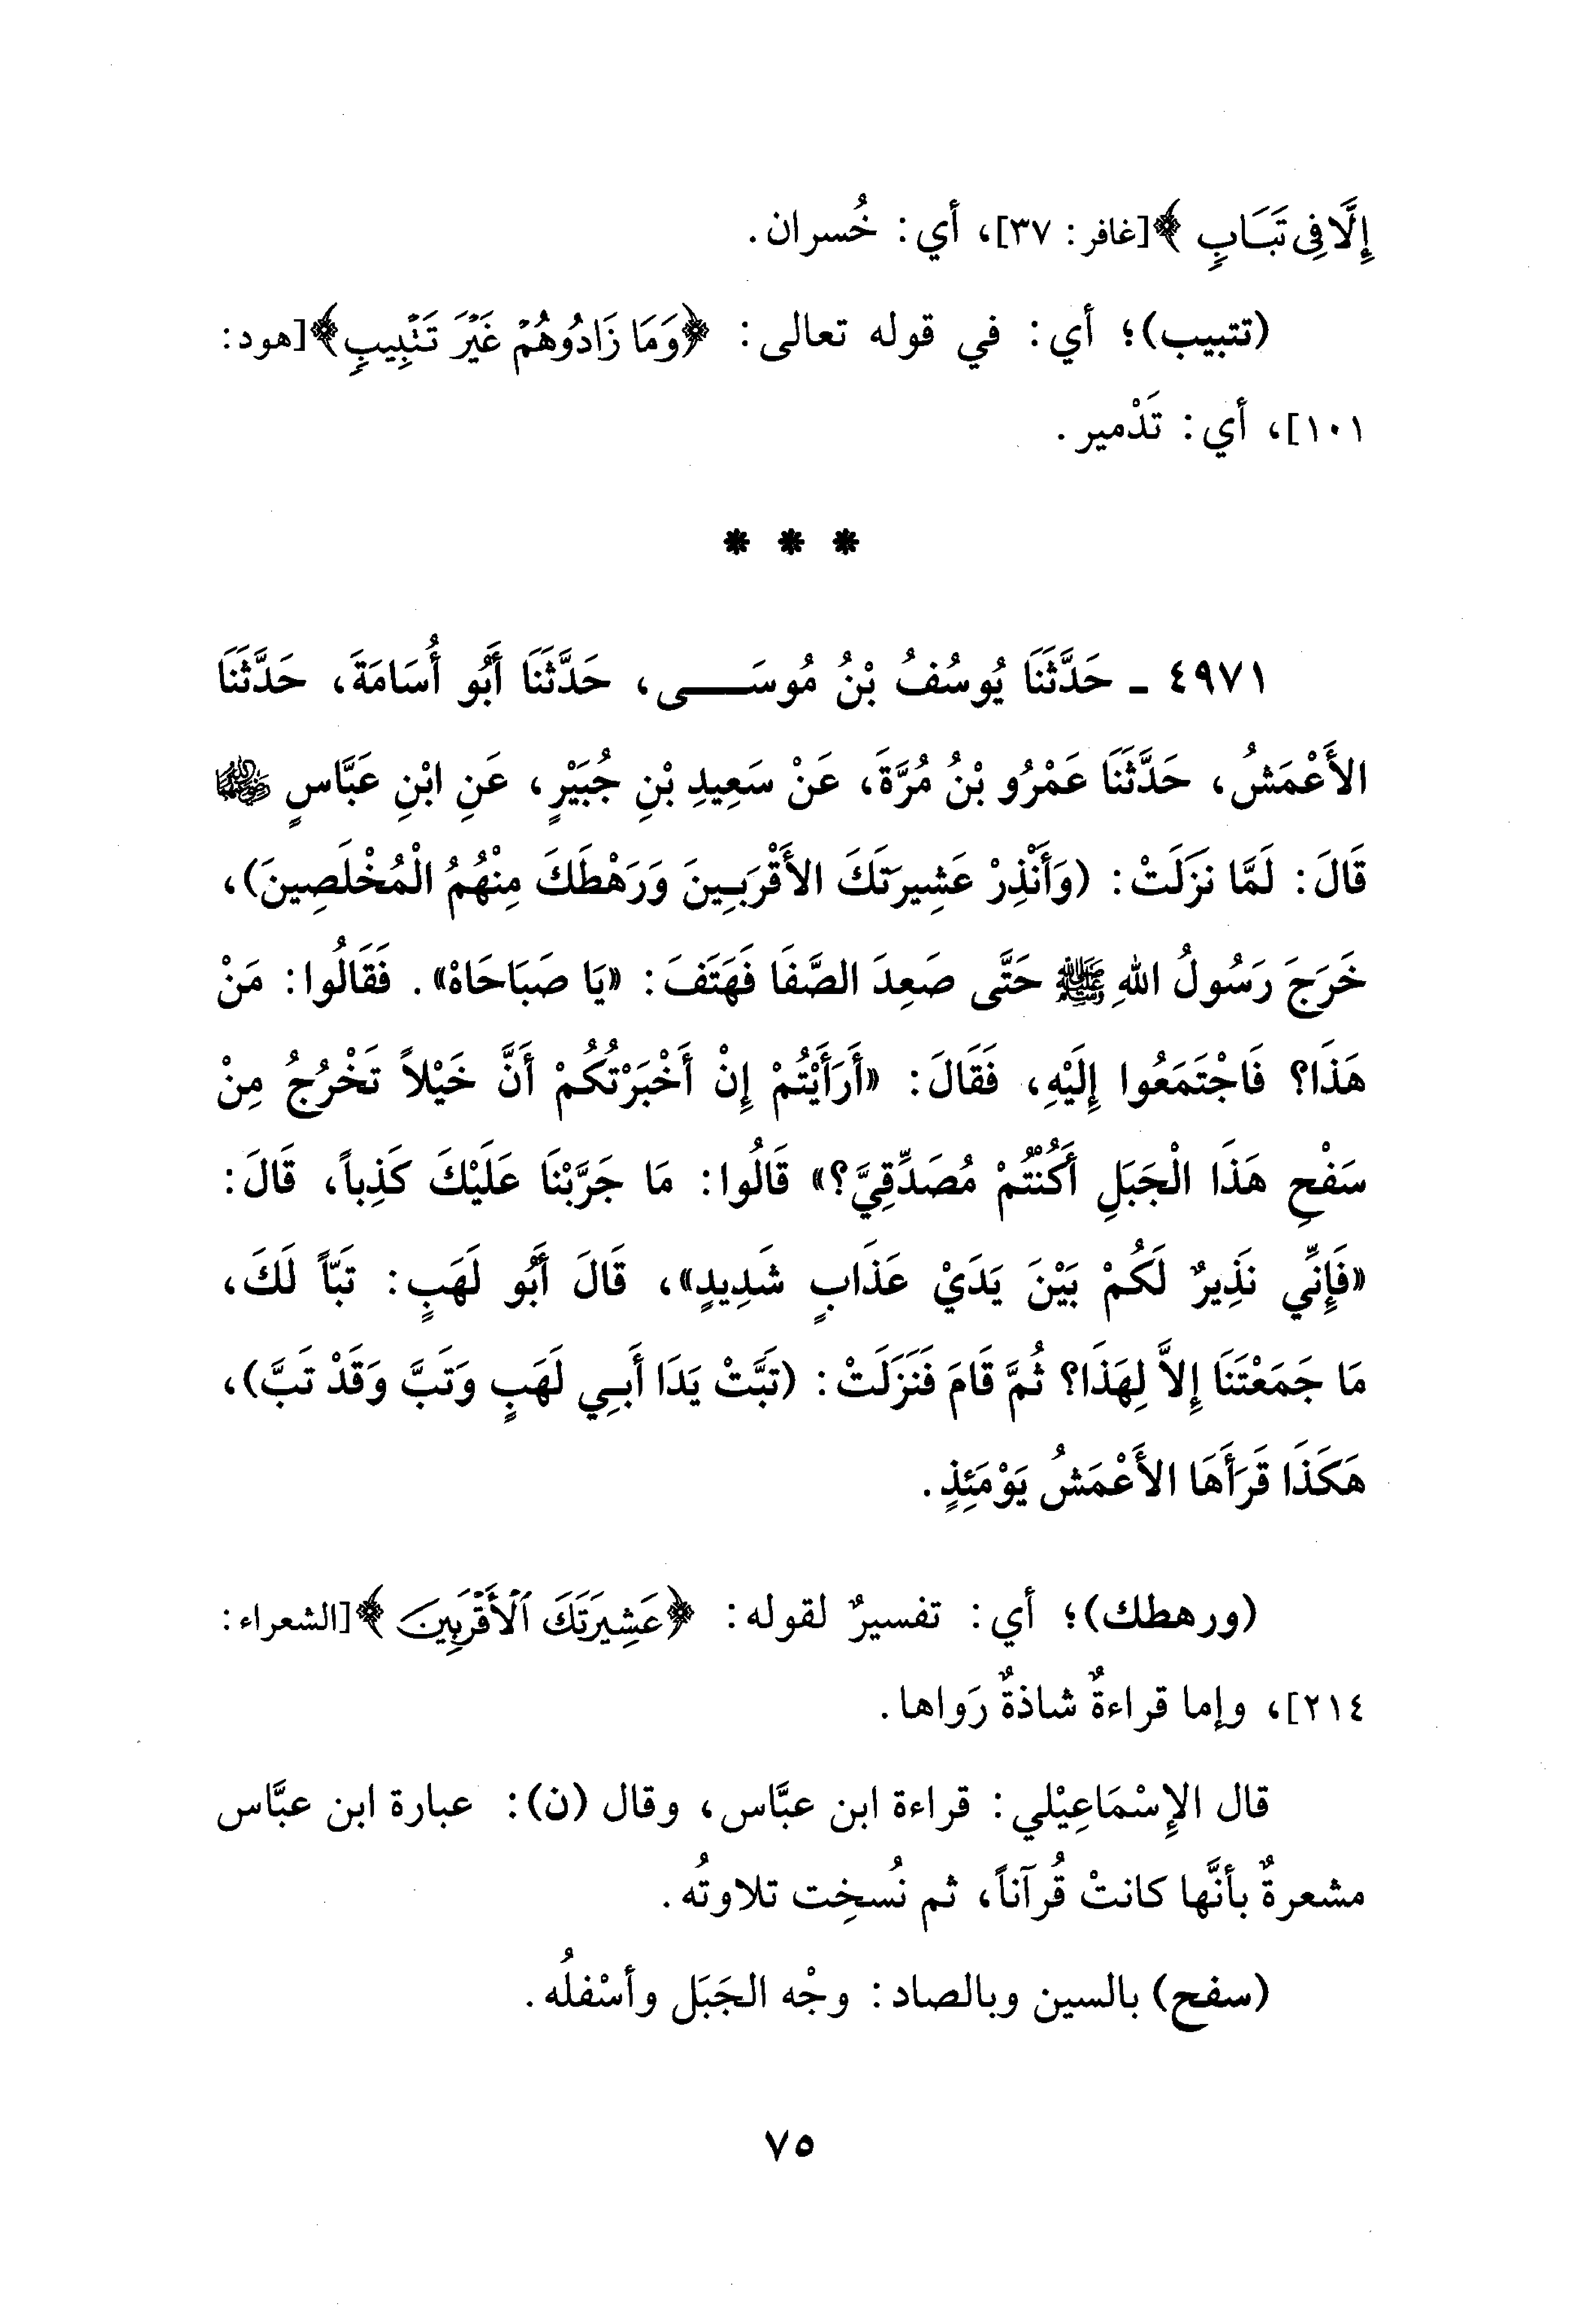 إِلَّا فِى تَبَابٍ ﴾[غافر: ٣٧]، أي: خُسران.
(تتبيب)؛ أي: في قوله تعالى: ﴿وَمَا زَادُوهُمْ غَيْرَ تَتْبِيبٍ﴾[هود:
١٠١]، أي: تَدْمير.
* * *
٤٩٧١ ـ حَدَّثَنَا يُوسُفُ بْنُ مُوسَـــى، حَدَّثَنَا أَبُو أُسَامَةَ، حَدَّثَنَا
الأَعْمَشُ، حَدَّثَنَا عَمْرُو بْنُ مُرَّةَ، عَنْ سَعِيدِ بْنِ جُبَيْرٍ، عَنِ ابْنِ عَبَّاسٍ رضي الله عنهما
قَالَ: لَمَّا نَزَلَتْ: (وَأَنْذِرْ عَشِيرَتَكَ الأَقْرَبِـينَ وَرَهْطَكَ مِنْهُمُ الْمُخْلَصِينَ)،
خَرَجَ رَسُولُ اللهِ ﷺ حَتَّى صَعِدَ الصَّفَا فَهَتَفَ: «يَا صَبَاحَاهْ». فَقَالُوا: مَنْ
هَذَا؟ فَاجْتَمَعُوا إِلَيْهِ، فَقَالَ: «أَرَأَيْتُمْ إِنْ أَخْبَرْتُكُمْ أَنَّ خَيْلاً تَخْرُجُ مِنْ
سَفْحِ هَذَا الْجَبَلِ أَكُنْتُمْ مُصَدِّقِيَّ؟» قَالُوا: مَا جَرَّبْنَا عَلَيْكَ كَذِباً، قَالَ:
«فَإِنِّي نَذِيرٌ لَكُمْ بَيْنَ يَدَيْ عَذَابٍ شَدِيدٍ»، قَالَ أَبُو لَهَبٍ: تَبّاً لَكَ،
مَا جَمَعْتَنَا إِلاَّ لِهَذَا؟ ثُمَّ قَامَ فَنَزَلَتْ: (تَبَّتْ يَدَا أَبِـي لَهَبٍ وَتَبَّ وَقَدْ تَبَّ)،
هَكَذَا قَرَأَهَا الأَعْمَشُ يَوْمَئِذٍ.
(ورهطك)؛ أي: تفسيرٌ لقوله: ﴿عَشِيرَتَكَ ٱلْأَقْرَبِينَ ﴾[الشعراء:
٢١٤]، وإما قراءةٌ شاذةٌ رَواها.
قال الإسْمَاعِيْلي: قراءة ابن عبَّاس، وقال (ن): عبارة ابن عبَّاس
مشعرةٌ بأنَّها كانتْ قُرآناً، ثم نُسخِت تلاوتُه.
(سفح) بالسين وبالصاد: وجْه الجَبَل وأسْفلُه.
٧٥